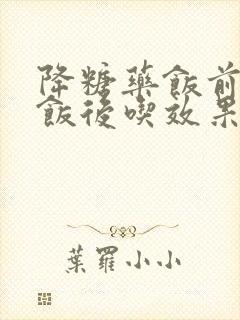 降糖藥飯前
飯後喫效果
葉羅小小